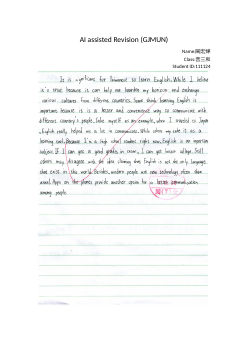 AI assisted Revision (GJMUN)
Name:
Class:
Student ID:111124
It is important for Taiwanese to learn English. While I believe
it's true because is can help me broaden my horizon and exchange
various cultures from different countries. Some think learning English is
important because is is a easier and convenient way to communicate with
different country's people. Take myself as an example, when I traveled to Japan
, English really helped me a lot in communication. While others may take it as a
learning tool. Because I'm a high school student right now, English is an important
subject. If I can get a good grades in exam, I can get better college. Still
others may disagree with the idea claiming that English is not the only language
that exist in the world. Besides, modern people use new technology often then
Apps on the phones provide another option for a better communication
among people.